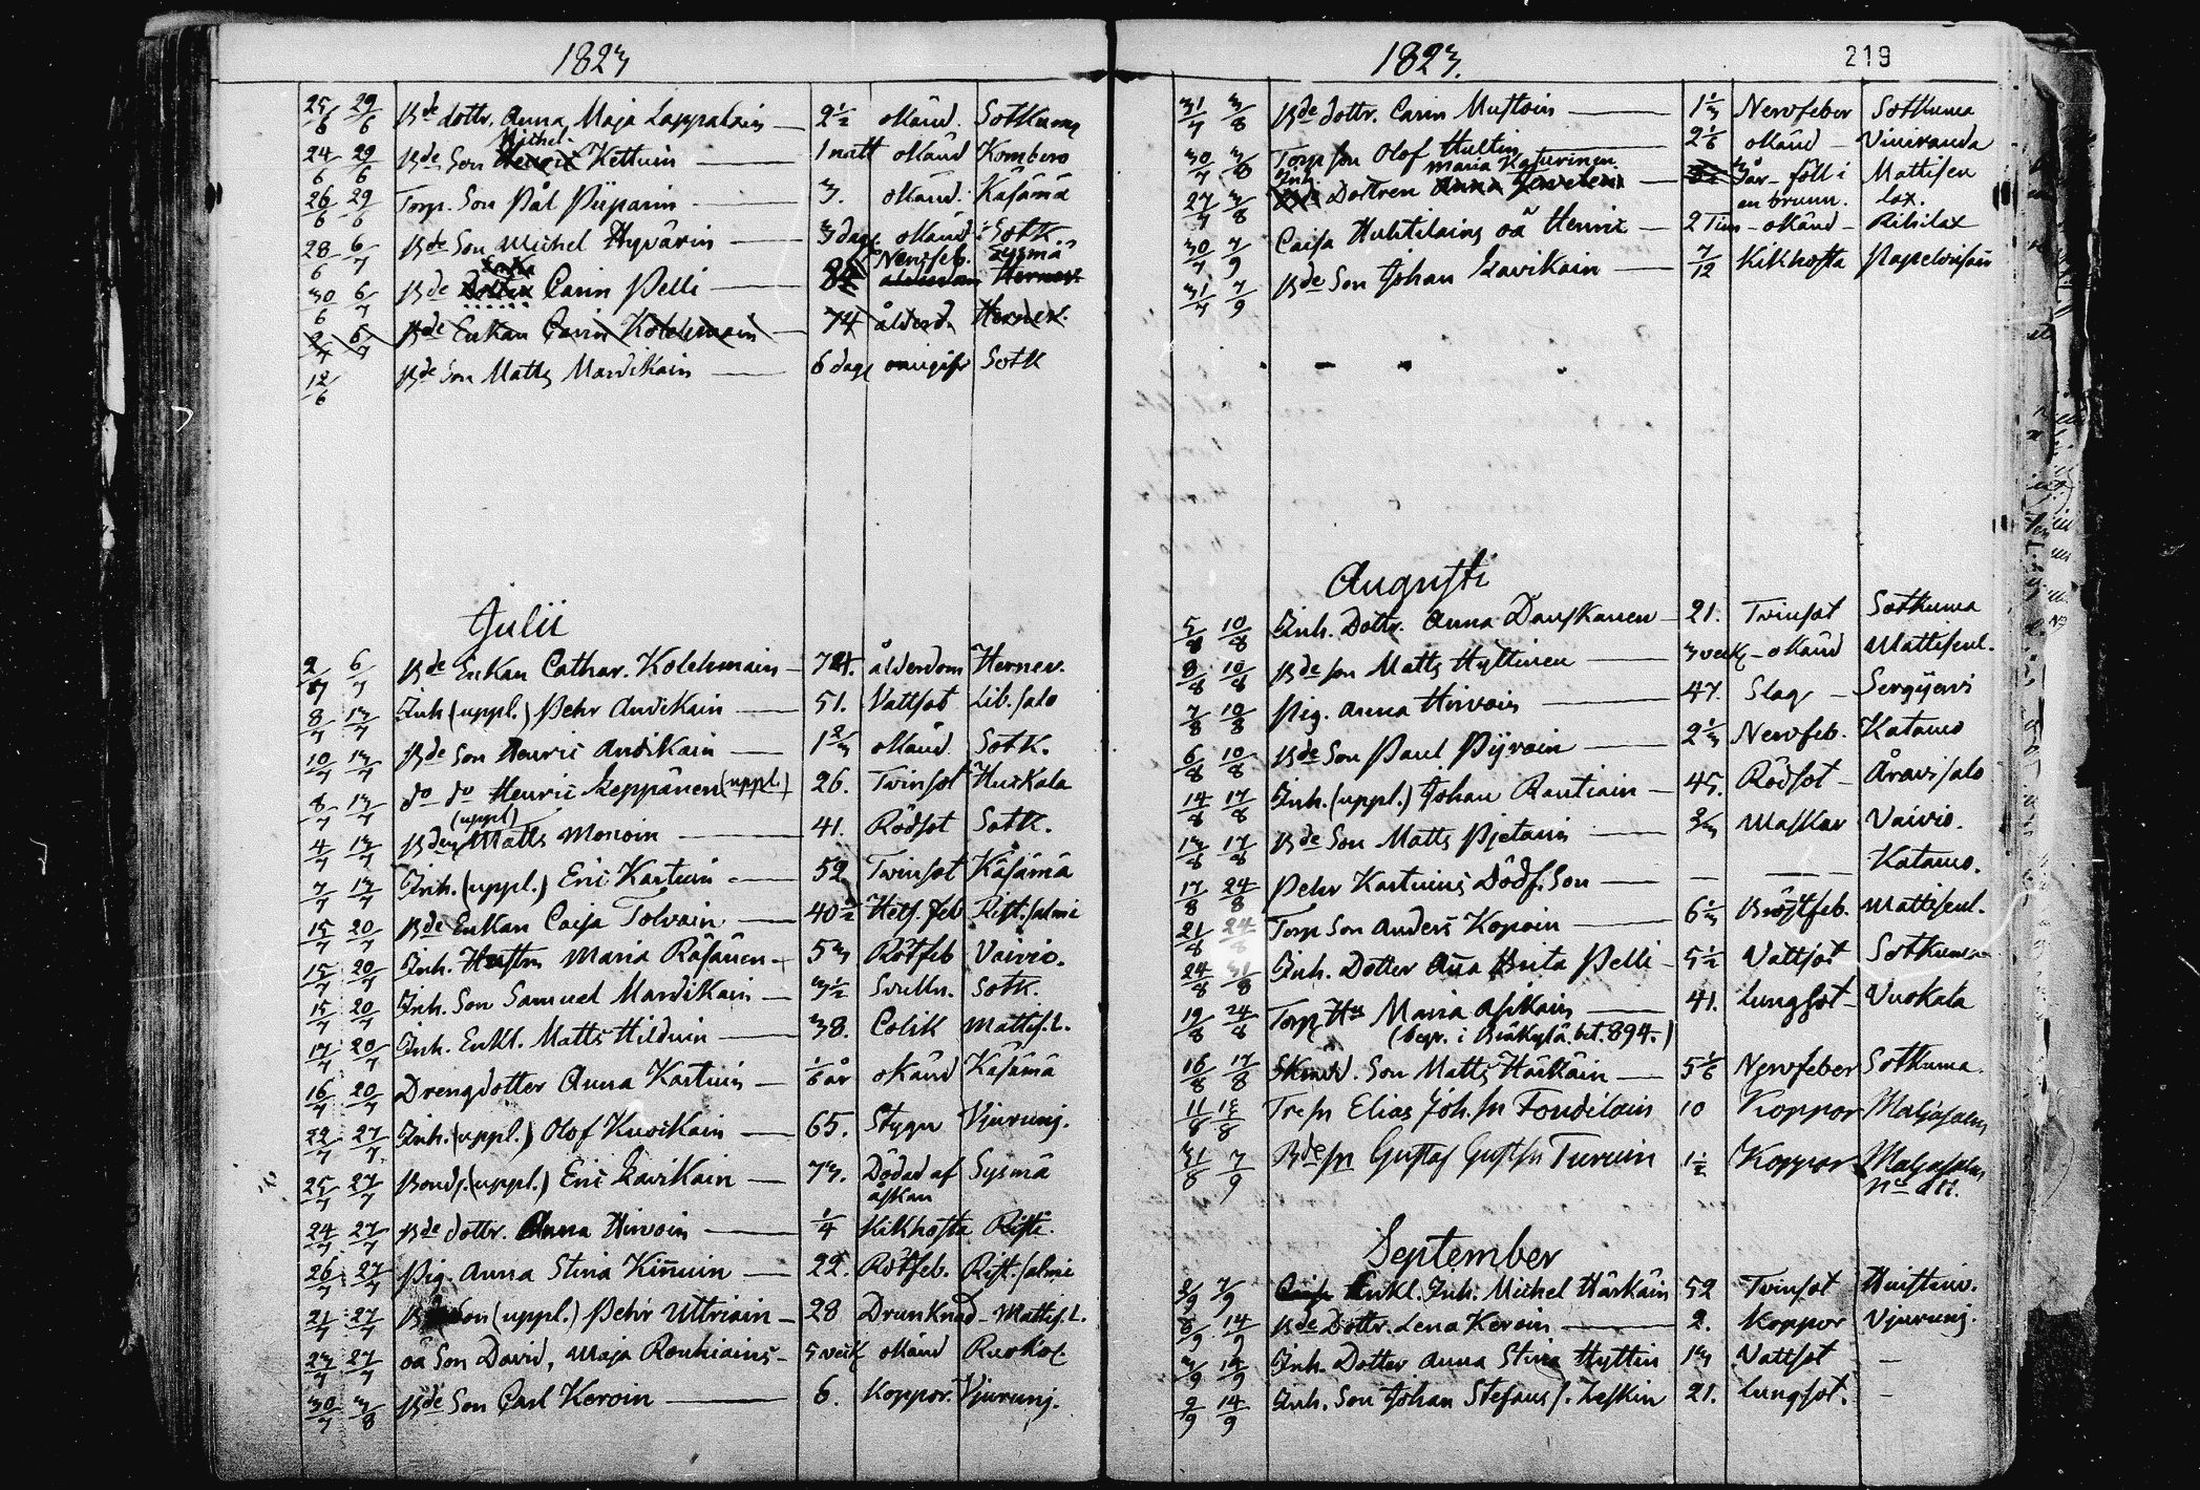 1823
25/6 29/6 Bde dottr. Anna Maja Lappalain — 2½ okänd. Sotkuma
Michel
24/6 29/6 Bde Son Henric Kettuin — 1 natt okänd Kombero
26/6 29/6 Torp. Son Pål Piiparin — 3. okänd. Käsämä
28/6 6/7 Bde Son Michel Hyvärin — 3 dag. okänd Sotk.
Enka Nervfeb. Sysmä
30/6 6/7 Bde Dotter Carin Pelli — 84 ålderdom Hernev.
2/7 6/7 Bde Enkan Carin Kolehmain — 74 ålderd. Hernev.
12/6 Bde Son Matts Mardikain — 6 dag. onigifv Sotk
Julii
2/7 6/7 Bde Enkan Cathar. Kolehmain — 74. ålderdom Hernev.
8/7 13/7 Inh (uppl.) Pehr Andikain — 51. Vattsot Lib.salo
10/7 13/7 Bde Son Henric Andikain — 1 2/3 okänd. Sotk.
8/7 13/7 do do Henric Leppänen (uppl.) 26. Twinsot Huikala
(uppl)
4/7 13/7 Bden Matts Monoin — 41. Rödsot Sotk.
7/7 13/7 Inh. (uppl.) Eric Kartuin — 52 Twinsot Käsämä
15/7 20/7 Bde Enkan Caisa Tolvain — 40½ Hets. feb Rist.salmi
15/7 20/7 Inh. Hustru Maria Räsänen — 53 Rötfeb Vaivio.
15/7 20/7 Inh. Son Samuel Mardikain — 3½ Svulln. Sotk.
17/7 20/7 Inh. Enkl. Matts Hilduin — 38. Colik Mattis.L.
16/7 20/7 Drengdotter Anna Kartuin — 1/6 år okänd Käsämä
22/7 27/7 Inh. (uppl.) Olof Kuosikain — 65. Stygn Vjurunj.
25/7 27/7 Bonds. (uppl.) Eric Lavikain — 73. Dödad af Sysmä
åskan
24/7 27/7 Bde dottr. Anna Hirvoin — 1/4 Kikhosta Risti.
26/7 27/7 Pig. Anna Stina Kinnuin — 22. Rötfeb. Rist.salmi
21/7 27/7 Son (uppl.) Pehr Uttriain — 28 Drunknad — Mattis.L.
23/7 27/7 oä Son David, Maja Rouhiains — 5 veck okänd Ruokol
30/7 3/8 Bde Son Carl Keroin — 6. Koppor. Vjurunj.
1823.
219
31/7 3/8 Bde dottr. Carin Mustoin — 1⅓ Nervfeber Sotkuma
30/7 3/8 Torp son Olof Hultin — 2 1/6 okänd — Viiniranda
Inh. Maria Kasurinen
27/7 3/8 Dottren Anna — 3 år — föll i Mattisen
en brunn. lax.
30/7 7/9 Caisa Huhtilains oä Henric — 2 Tim — okänd — Rihilax
31/7 7/9 Bde Son Johan Lavikain — 7/12 Kikhosta
Augusti
5/8 10/8 Inh. Dottr. Anna Danskanen — 21. Twinsot Sotkuma
8/8 10/8 Bde son Matts Hyttinen — 3 veck — okänd Mattisenl.
7/8 10/8 Pig. Anna Hirvoin — 47. Slag — Sergijervi
6/8 10/8 Bde Son Paul Pijroin — 2⅓ Nervfeb. Katamo
14/8 17/8 Inh. (uppl.) Johan Rautiain — 45. Rödsot — Åravisalo
13/8 17/8 Bde Son Matts Pjetarin — 2/3 Maskar Vaivio.
17/8 24/8 Pehr Kartuins Dödf. Son — — — Katamo.
21/8 24/8 Torp Son Anders Kopoin — 6⅓ Bröstfeb. Mattisenl.
24/8 31/8 Inh. Dotter Anna Brita Pelli — 5½ Vattsot Sotkuma
19/8 24/8 Torp Hu Maria Asikain — 41. lungsot — Vuokala
(begr. i Bräkylä bet. 894.)
16/8 17/8 Skrädd. Son Matts Härkäin — 5 1/6 Nervfeber Sotkuma.
11/8 15/8 Trpsn Elias Joh.sn Toudilain 10 Koppor Maljasalm
31/8 7/9 Bdesn Gustaf Gustfsn Turuin 1½ Koppor Maljasalm
September
2/9 7/9 Enkl. Inh. Michel Härkäin 52 Twinsot Huistinv.
8/9 14/9 Bde Dottr. Lena Keroin — 2. Koppor Vjurunj.
3/9 14/9 Inh. Dotter Anna Stina Hyttin 13 Vattsot —
9/9 14/9 Inh. Son Johan Stefans s. Leskin 21. lungsot. —